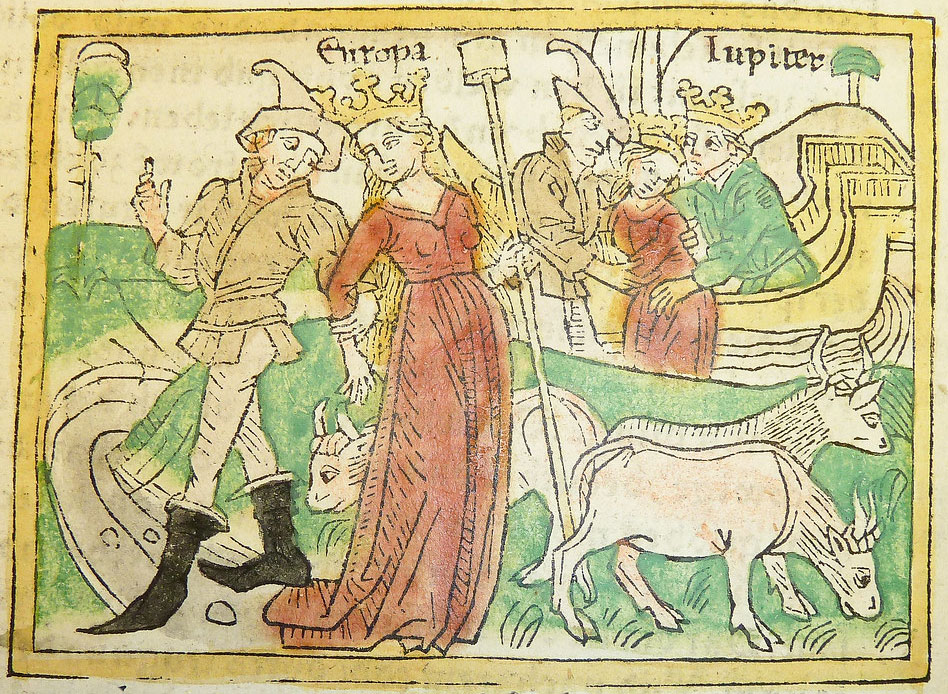 Europa
Iupiter